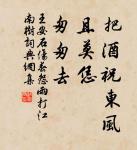 把酒祝東風
且莫恁
匆匆去
王安石傷春怨雨打江
南樹詞典網集